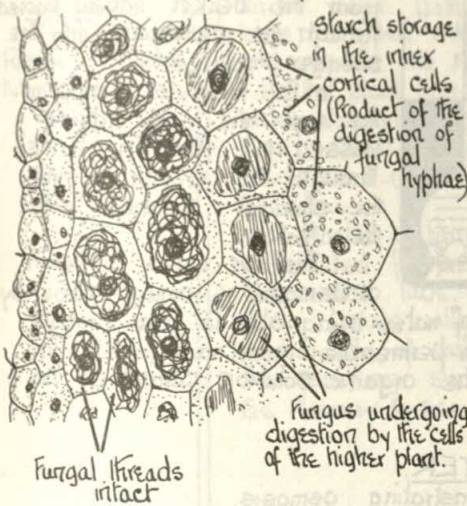 Starch storage
in the inner
cortical cells
(Product of the
digestion of
fungal
hyphae)
Fungus undergoing
digestion by the cells
of the higher plant.
Fungal threads
intact